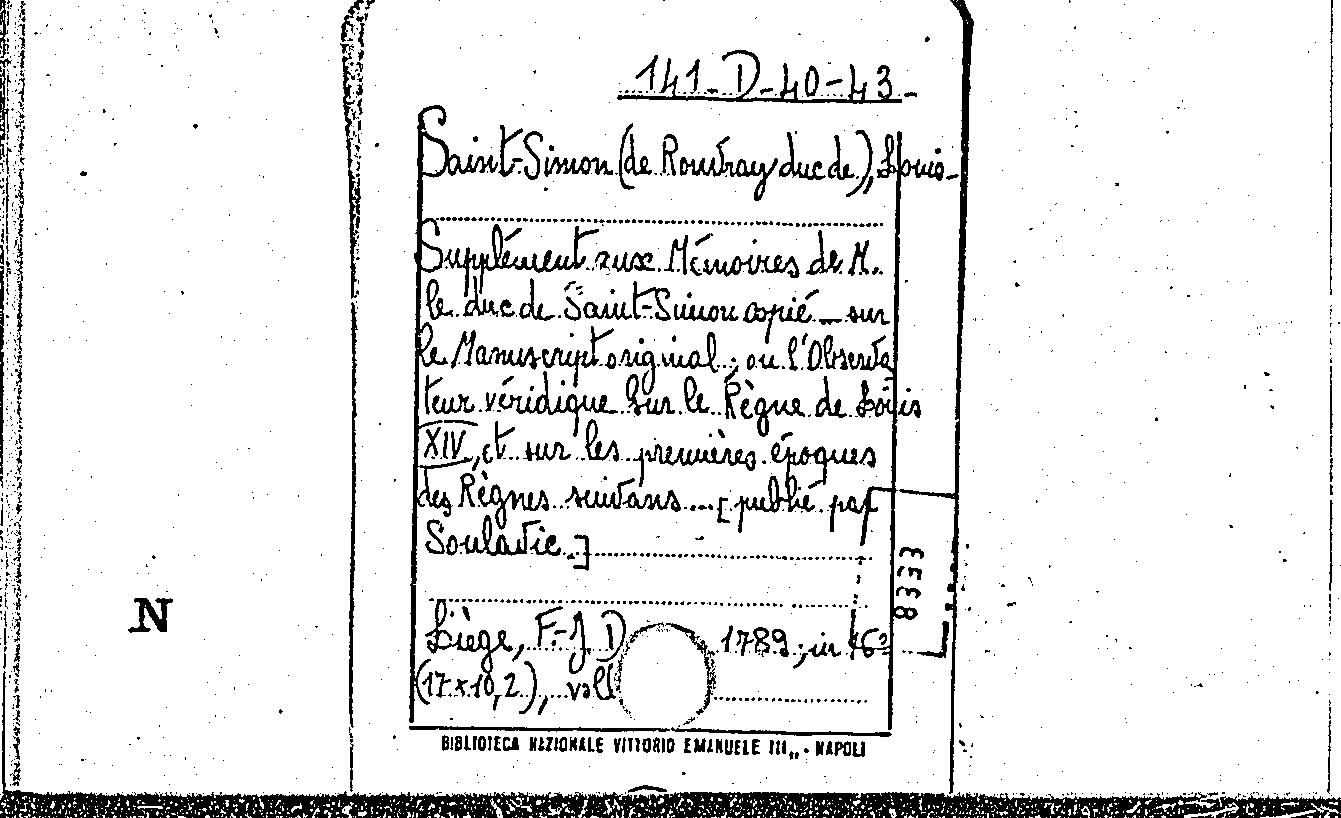 141-D-40-43-
Saint-Simon (de Rouvray duc de), Louis-
Supplément aux Mémoires de M.
le duc de Saint-Simon copié sur
le Manuscript original; ou l'Observa
teur véridique sur le Règne de Louis
XIV, et sur les premières époques
des Règnes suivans.... [publié par
Soulavie.]
8333
N
Liège, F.-J. D 1789; in 16º
(17x10,2), vol
BIBLIOTECA NAZIONALE VITTORIO EMANUELE III,, - NAPOLI